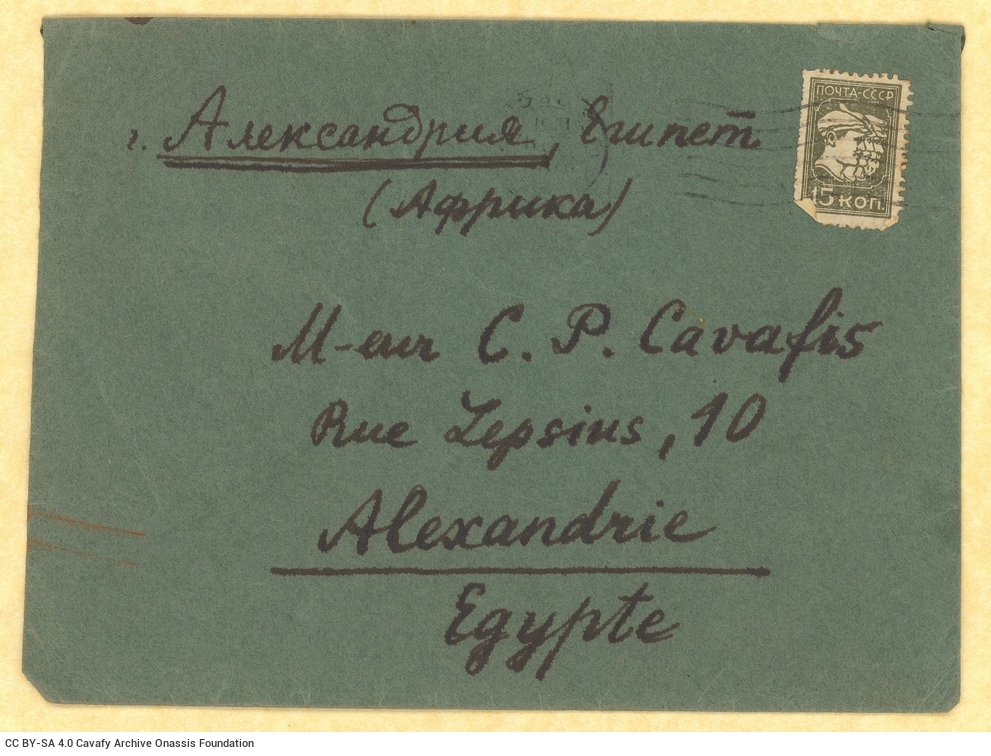 г. Александрия, Египет.
(Африка)
ПОЧТА-СССР
15 КОП.
M-eur C. P. Cavafis
Rue Lepsius, 10
Alexandrie
Egypte
CC BY-SA 4.0 Cavafy Archive Onassis Foundation